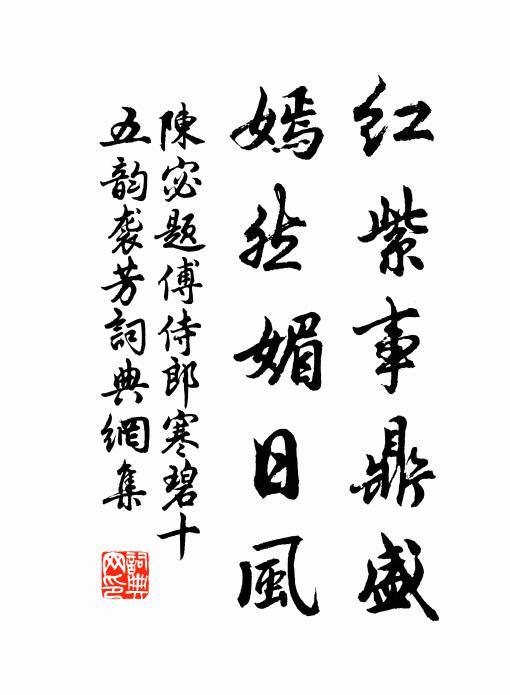 红紫事鼎盛
嫣然媚日風
陳宓题傅侍郎寒碧十
五韵袭芳詞典網集
詞典网印